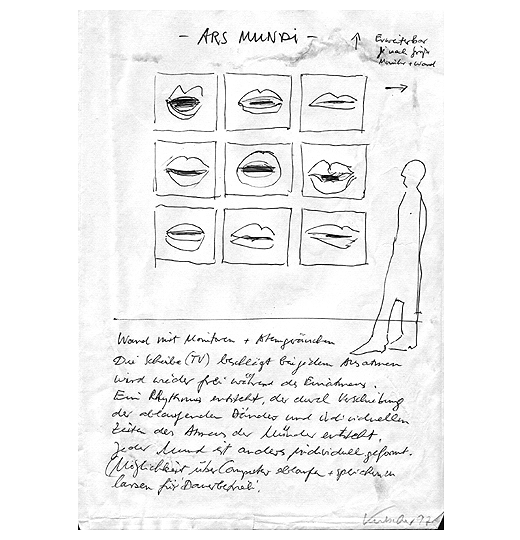 - ARS MUNDI -
Erweiterbar
je nach größe
Monitor + Wand
Wand mit Monitoren + Atemgeräuschen
Die Scheibe (TV) beschlägt bei jedem Ausatmen
wird wieder frei während des Einatmens.
Ein Rhythmus entsteht, der durch Verschiebung
der ablaufenden Bänder und individuellen
Zeiten des Atmens der Münder entsteht.
Jeder Mund ist anders individuell geformt.
(Möglichkeit über Computer ablaufen + speichern zu
lassen für Dauerbetrieb.
97